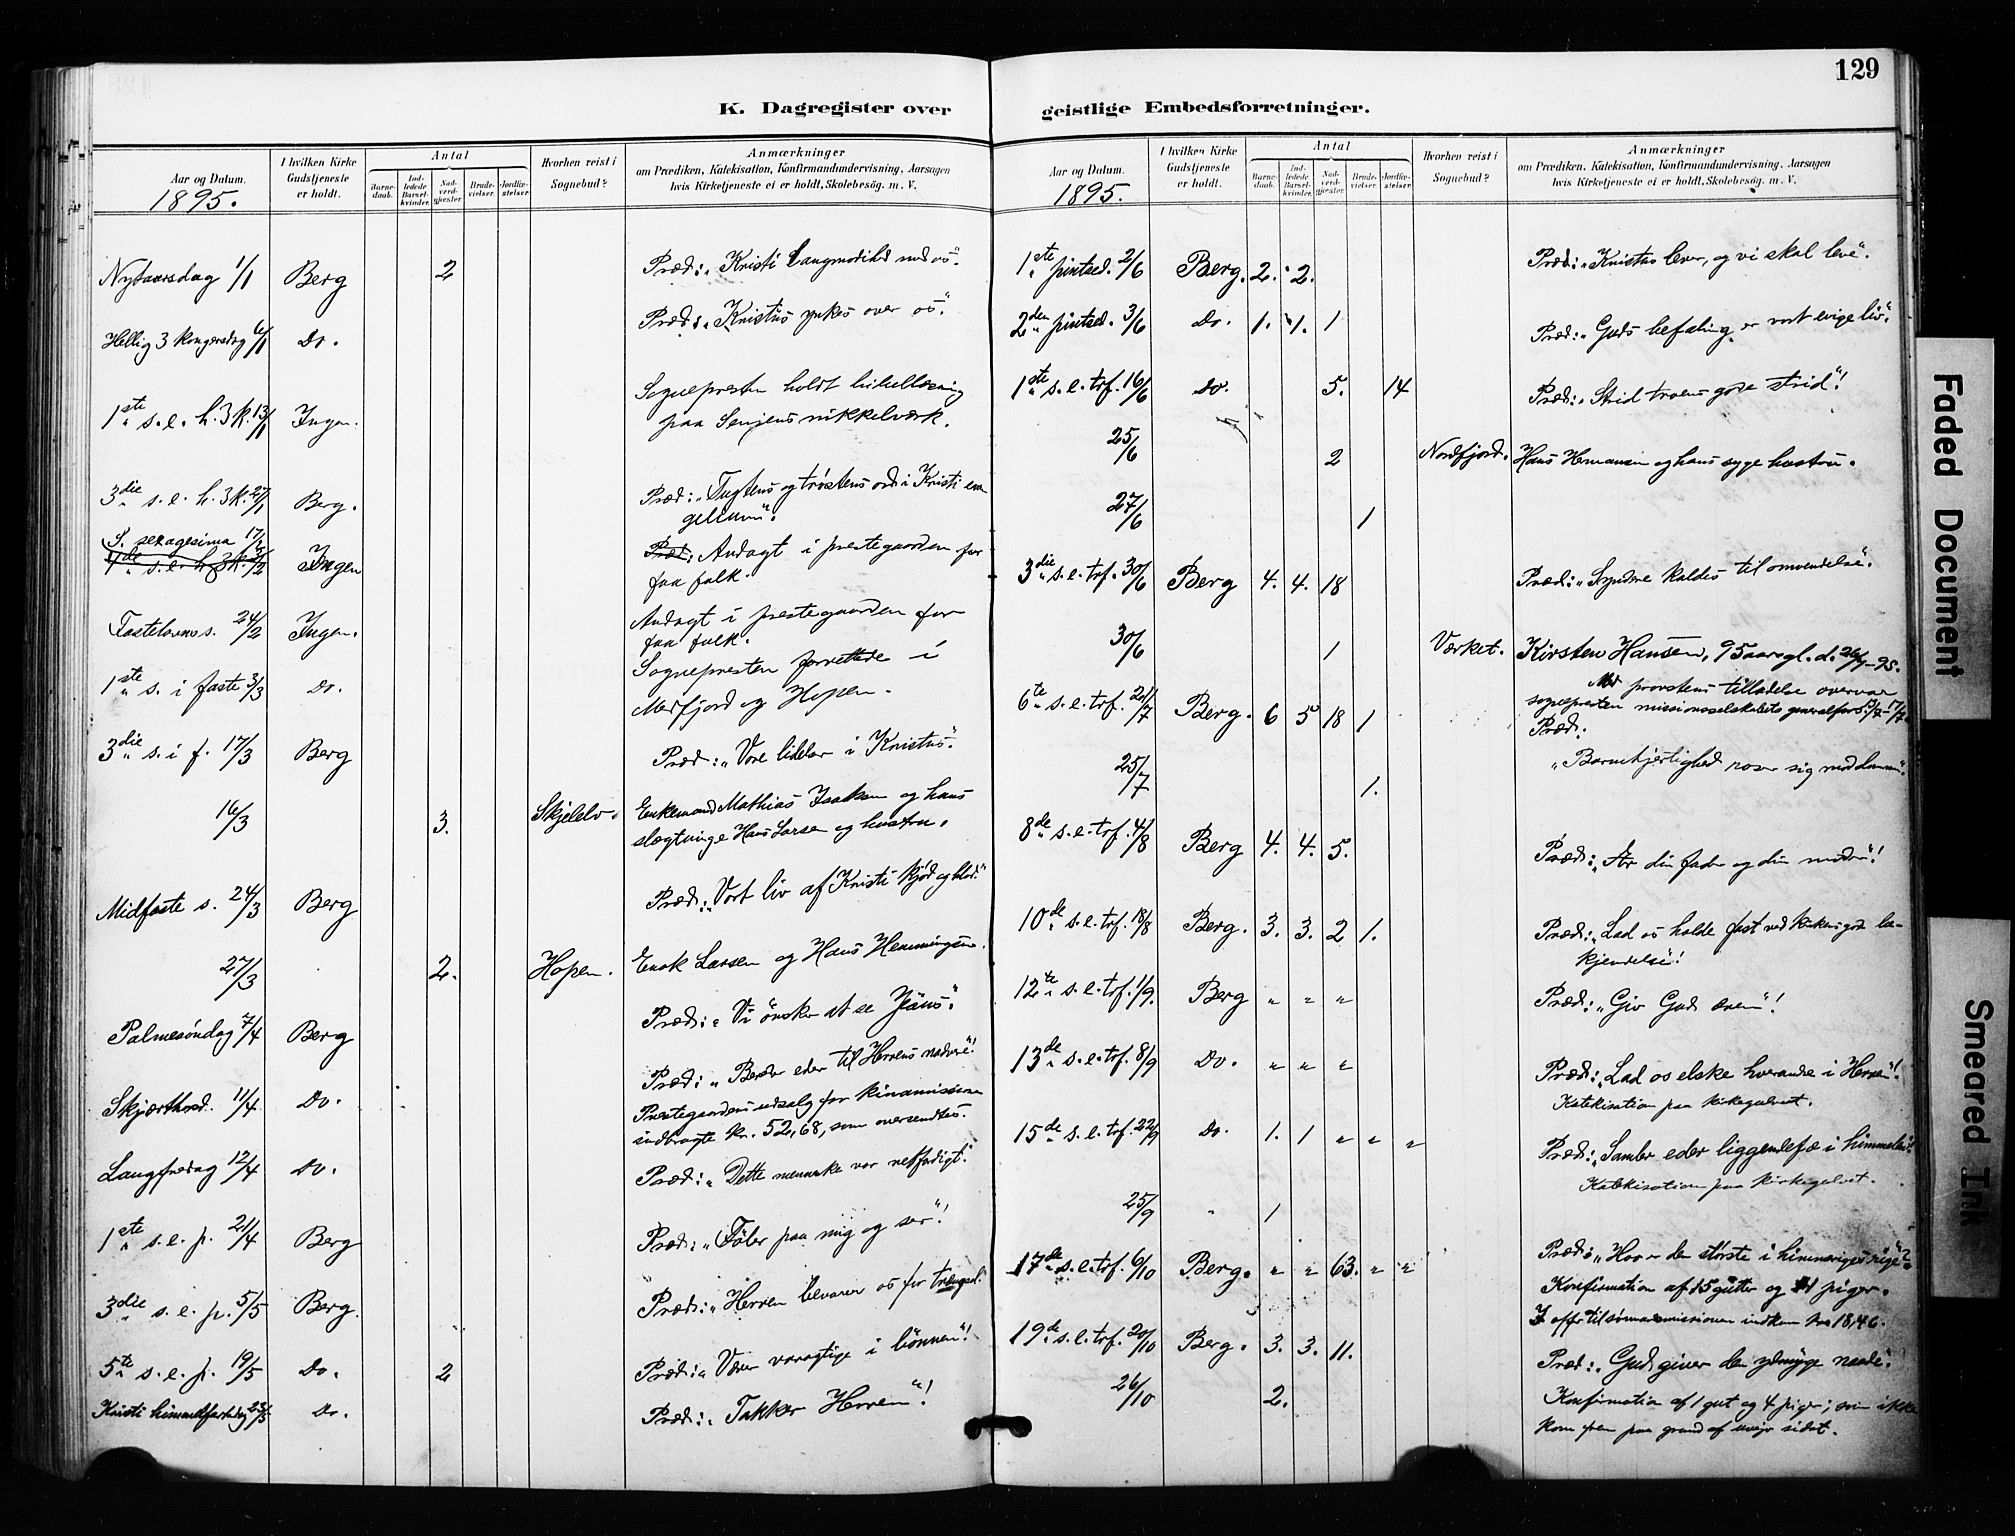 129
K. Dagregister over
Aar og Datum.
1895.
I hvilken Kirke
Gudstjeneste
er holdt.
Antal
Barne-
daab.
Ind-
ledede
Barsel-
kvinder.
Nad-
verd-
gjæster.
Brude-
vielser.
Jordfæ-
stelser.
Hvorhen reist i
Sognebud?
Anmærkninger
om Prædiken, Katekisation, Konfirmandundervisning, Aarsagen
hvis Kirketjeneste ei er holdt, Skolebesøg. m. V.
Nytaarsdag 1/1 Berg 2 Præd: "Kristi Langmodihed med os".
Hellig 3 kongersdag 6/1 Do. Præd: "Kristus ynkes over os".
1ste s. e. h. 3 k. 13/1 Ingen. Sognepresten holdt bibellæsning
paa Senjens nikkelværk.
3die s. e. h. 3 k. 27/1 Berg. Præd: "Tugtens og trøstens ord i Kristi evan
gelium".
S. sexagesima 17/2
Ingen Præd: Andagt i prestegaarden for
faa folk.
Fastelavns s. 24/2 Ingen. Andagt i prestegaarden for
faa folk.
1ste s. i faste 3/3 do. Sognepresten forrettede i
Mefjord og Hopen.
3die s. i f. 17/3 Berg Præd: "Vore lidelser i Kristus".
16/3 3. Skjelelv. Enkemand Mathias Isaksen og hans
slegtninge Hans Larsen og hustru.
Midfaste s. 24/3 Berg Præd: "Vort liv af Kristi kjød og blod".
27/3 2. Hopen. Enok Larsen og Hans Hemmingsen.
Palmesøndag 7/4 Berg Præd: "Vi ønsker at se Jesus".
Skjærthorsd. 11/4 Do. Præd: "Bereder eder til Herrens nadvere"!
Prestegaardens udsalg for kinamissionen
indbragte kr. 52,68, som oversendtes.
Langfredag 12/4 Do. Præd: "Dette menneske var retfærdigt".
1ste s. e. p. 21/4 Berg Præd: "Føler paa mig og ser"!
3die s. e. p. 5/5 Berg. Præd: "Herren bevarer os for trængsel."
5te s. e. p. 19/5 Do. 2 Præd: "Værer varagtige i bønnen"!
Kristi himmelfartsdag 23/5 Do. Præd: "Takker Herren"!
geistlige Embedsforretninger.
Aar og Datum.
1895.
I hvilken Kirke
Gudstjeneste
er holdt.
Antal
Barne-
daab.
Ind-
ledede
Barsel-
kvinder.
Nad-
verd-
gjester.
Brude-
vielser.
Jordfæ-
stelser.
Hvorhen reist i
Sognebud?
Anmærkninger
om Prædiken, Katekisation, Konfirmandundervisning, Aarsagen
hvis Kirketjeneste ei er holdt, Skolebesøg. m. V.
1ste pintsed. 2/6 Berg. 2. 2. Præd: "Kristus lever, og vi skal leve".
2den pintsed. 3/6 Do. 1. 1. 1 Præd: "Guds befaling er vort evige liv".
1ste s. e. tref. 16/6 Do. 5. 14 Præd: "Strid troens gode strid"!
25/6 2 Nordfjord. Hans Hemansen og hans syge hustru.
27/6 1
3die s. e. tref. 30/6 Berg 4. 4. 18 Præd: "Syndere kaldes til omvendelse".
30/6 1 Værket. Kirsten Hansen, 95 aargl. d. 26/7-95.
Med provstens tilladelse overvar
sognepresten missionsselskabets generalfors. 13/7-17/7
6te s. e. tref. 21/7 Berg. 6 5 18 1 Præd:
"Barmhjertighed roser sig mod dommen".
25/7 1.
8de s. e. tref. 4/8 Berg 4. 4. 5. Præd: "Ær din fader og din moder"!
10de s. e. tref. 18/8 Berg. 3. 3. 2 1. Præd: "Lad os holde fast ved kirkens gode be-
kjendelse"!
12te s. e. tref. 1/9. Berg " " " Præd: "Giv Gud æren"!
13de s. e. tref. 8/9 Do. " " " Præd: "Lad os elske hverandre i Herren"!
Katekisation paa kirkegulvet.
15de s. e. tref. 22/9 Do. 1. 1 " " " Præd: "Samler eder liggendefæ i himmelen"!
Katekisation paa kirkegulvet.
25/9 " 1
17de s. e. tref. 6/10 Berg. " " 63. " " Præd: "Hvo er den største i himmeriges rige"?
Konfirmation af 15 gutter og piger.
I offer til sømandsmissionen indkom kr. 18,46.
19de s. e. tref. 20/10 Berg. 3. 3. 11. Præd: "Gud giver den ydmyge naade".
26/10 2. Konfirmation af 1 gut og 4 piger; som ikke
kom frem paa grund af uveir sidst.
Faded Document
Smeared Ink